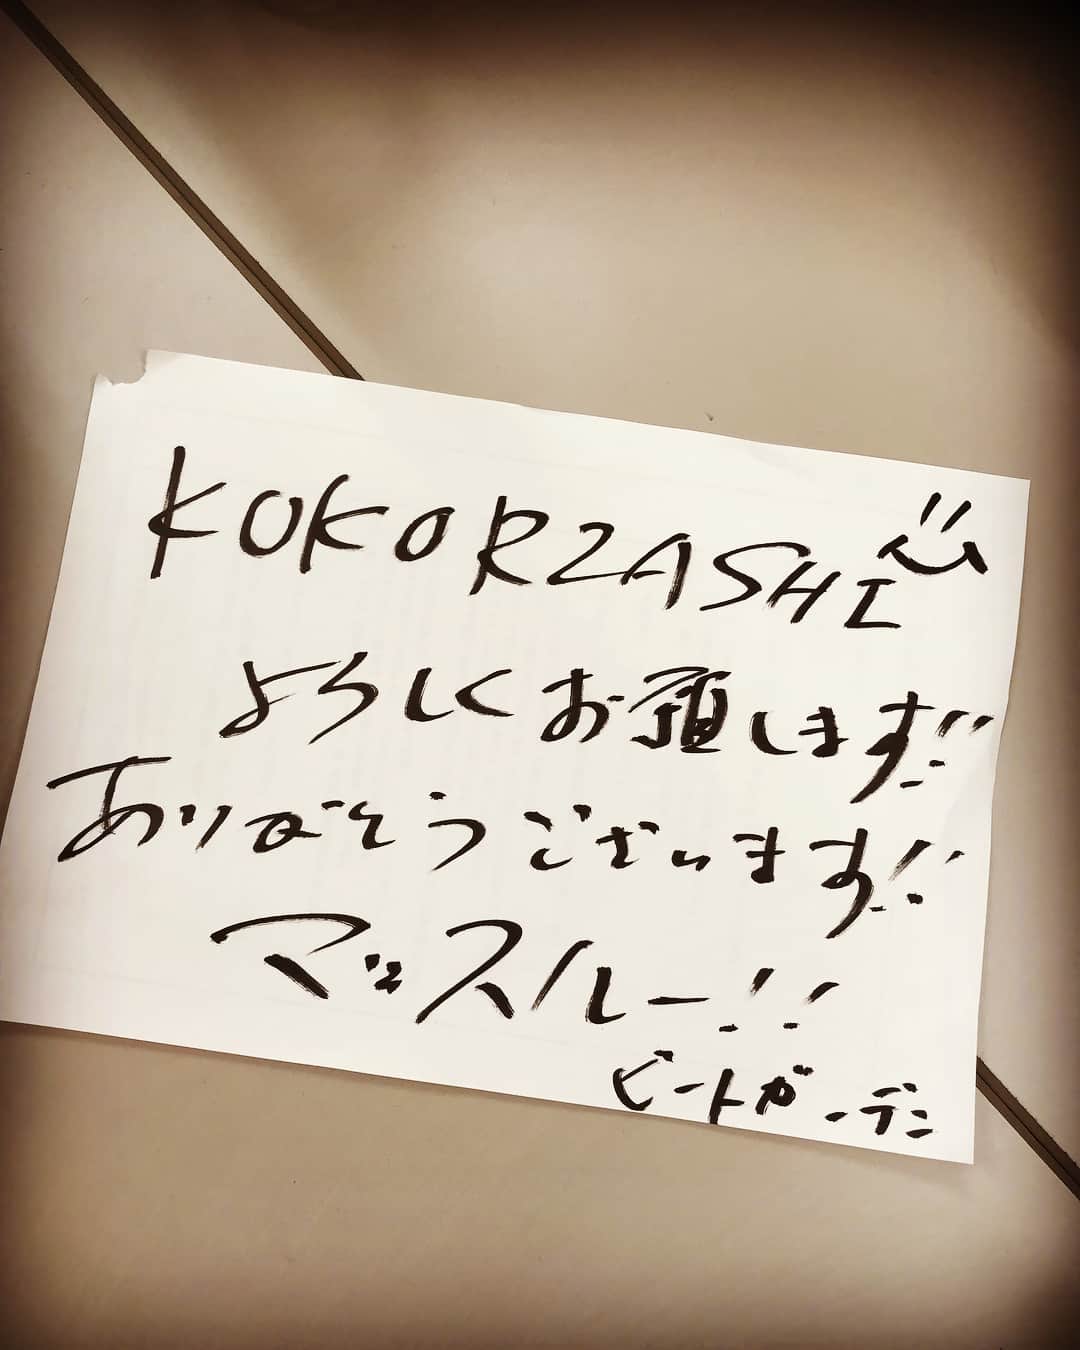 KOKORZASHI
よろしくお願します!!
ありがとうございます!!
マッスルー!!
ビートガーデン